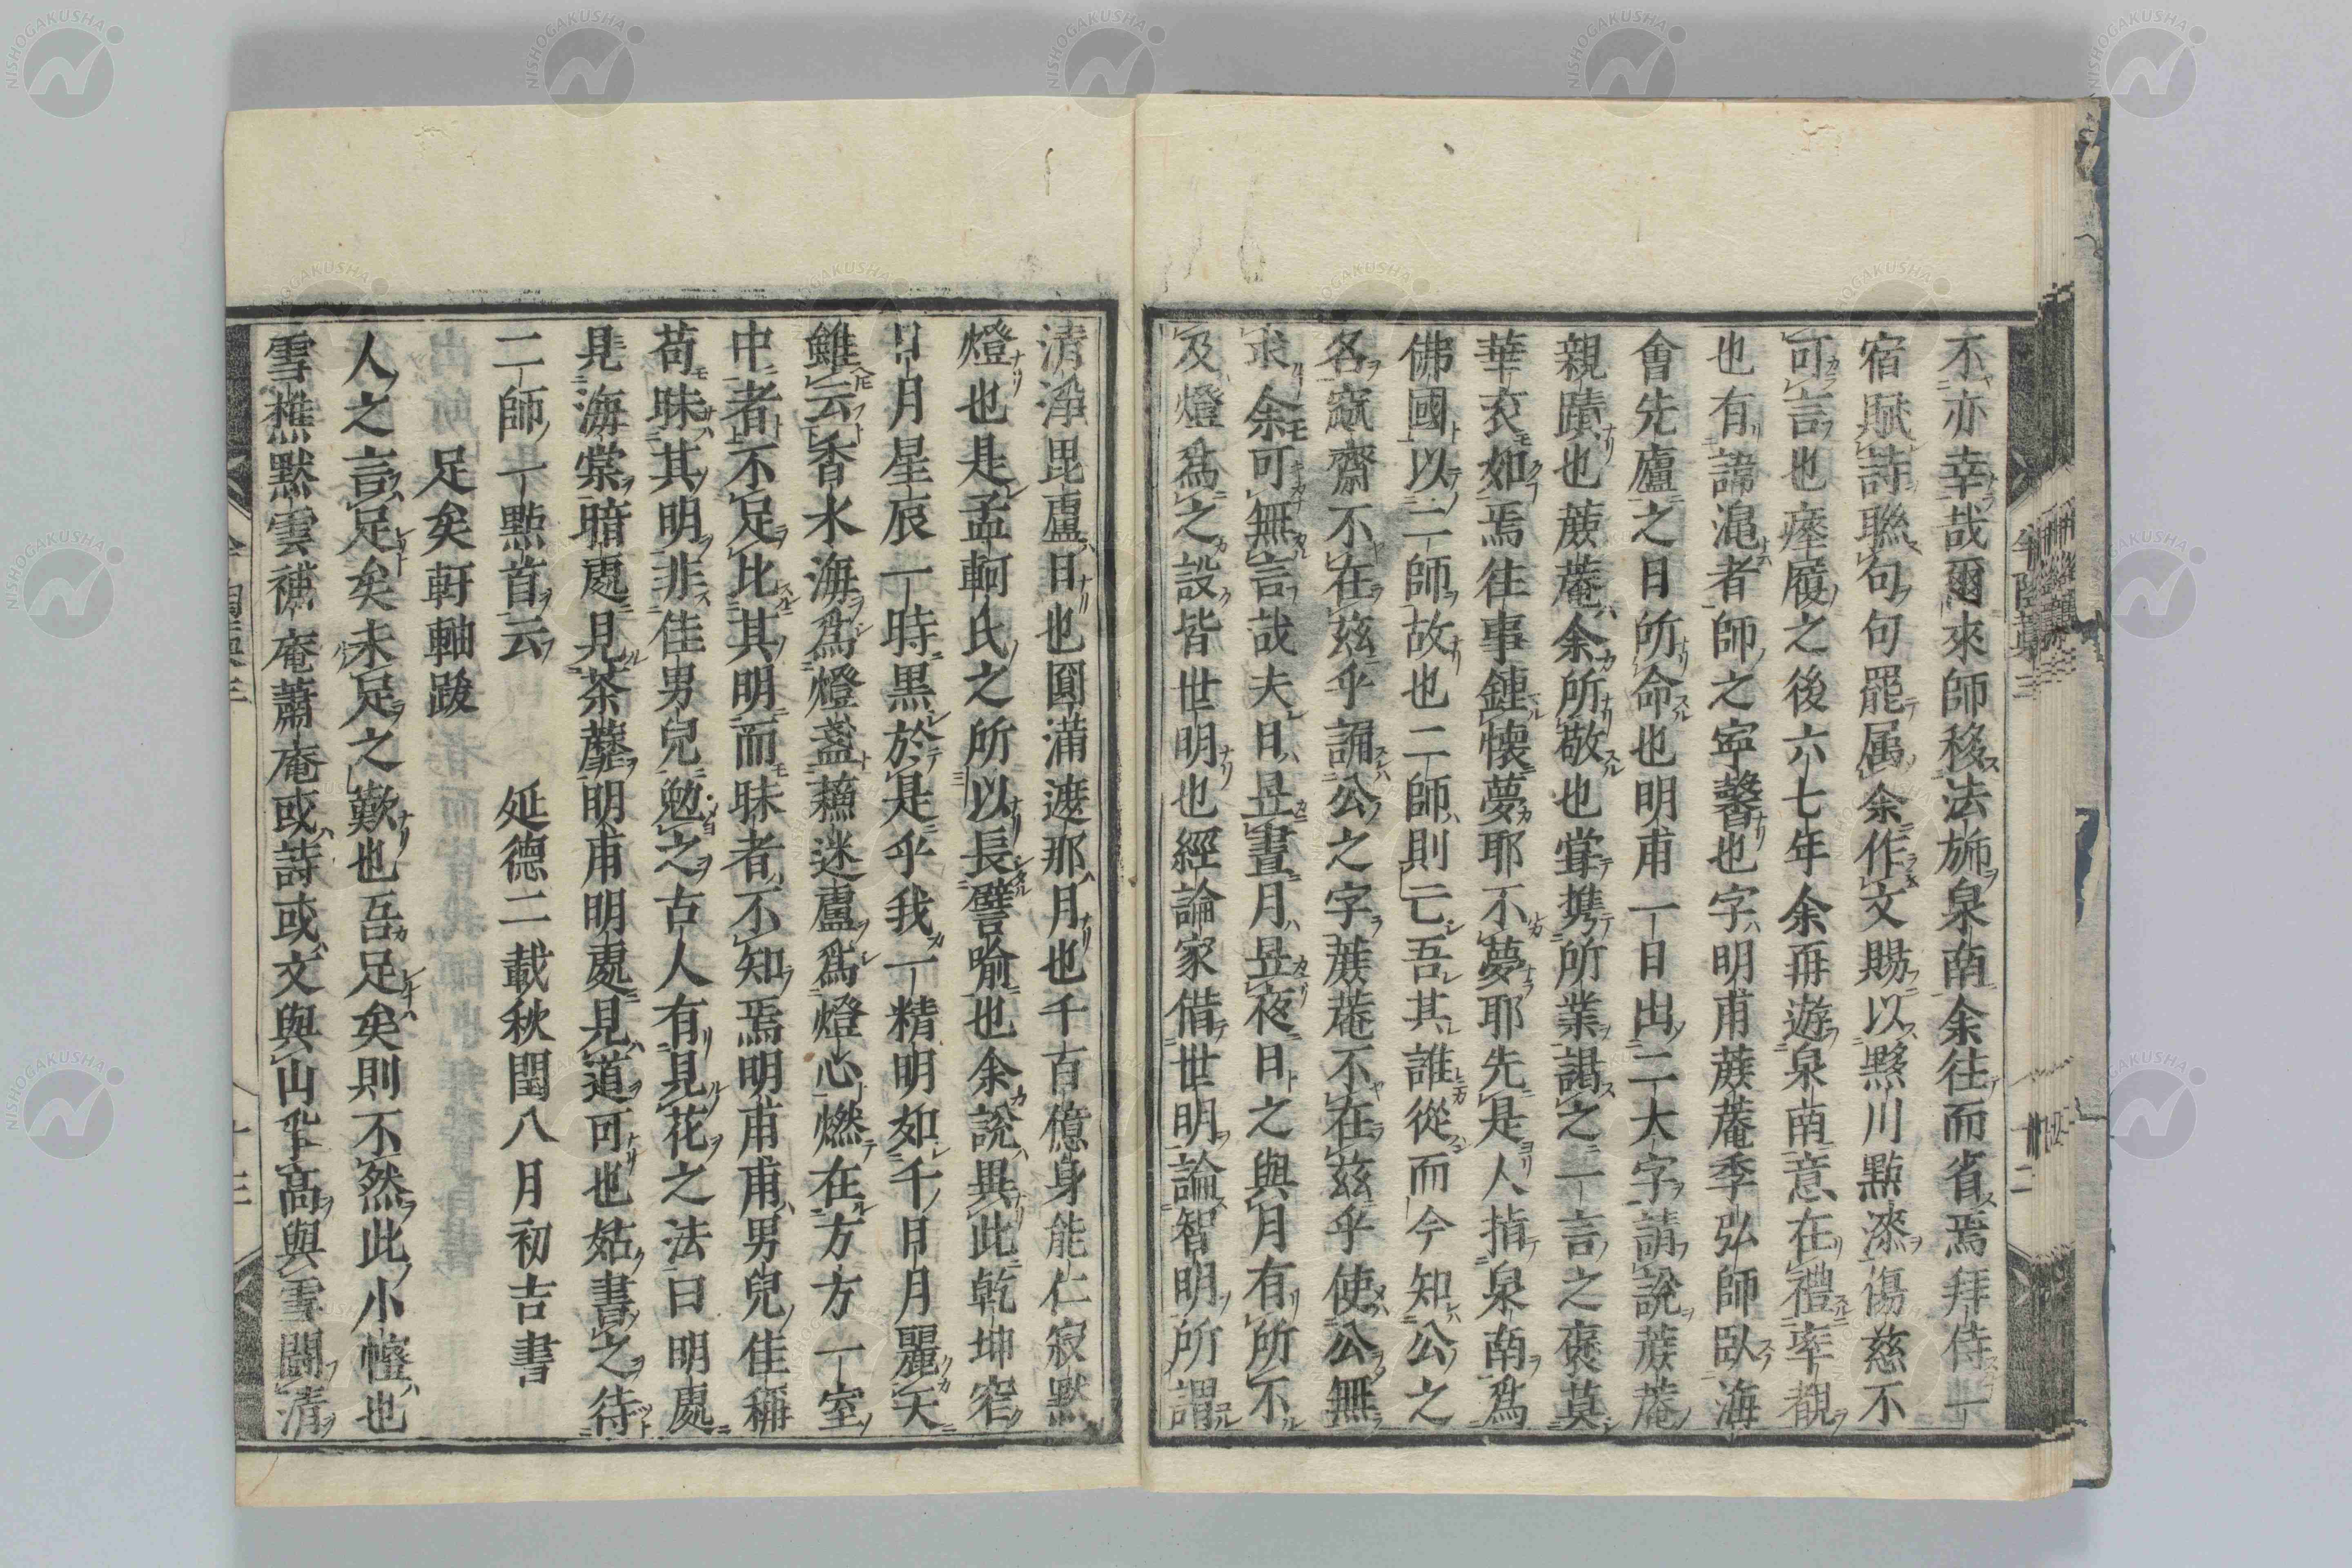 不亦幸哉爾來師移法旆泉南余往而省焉拜侍一
宿賦詩聯句句罷属余作文賜以黟川點漆傷慈不
可言也瘞履之後六七年余再遊泉南意在禮率覩
也有諱澠者師之寧馨也字明甫蔟菴季弘師臥海
會先廬之日所命也明甫一日出二大字請說蔟菴
親蹟也蔟菴余所敬也甞携所業謁之一言之褒莫
華衮如焉往事鍾懷夢耶不夢耶先是人指泉南爲
佛國以二師故也二師則亡吾其誰從而今知公之
名寂齋不在茲乎誦公之字蔟菴不在茲乎使公無
求余可無言哉夫日昱晝月昱夜日之與月有所不
及燈爲之設皆世明也經論家借世明論智明所謂
清淨毘盧日也圓滿遮那月也千百億身能仁寂默
燈也是孟軻氏之所以長譬喻也余說異此乾坤窄
日月星辰一時黒於是乎我一精明如千日月麗天
雖云香水海爲燈盞蘓迷盧爲燈心燃在方方一室
中者不足比其明而昧者不知焉明甫甫男兒佳稱
苟昧其明非佳男兒勉之古人有見花之法曰明處
見海棠暗處見茶蘼明甫明處見道可也姑書之待
二師一點首云　延德二載秋閏八月初吉書
足矣軒軸跋
人之言足矣未足之歎也吾足矣則不然此小幢也
雪樵默雲補庵蕭庵或詩或文與山爭高與雪鬪清
NISHOGAKUSHA